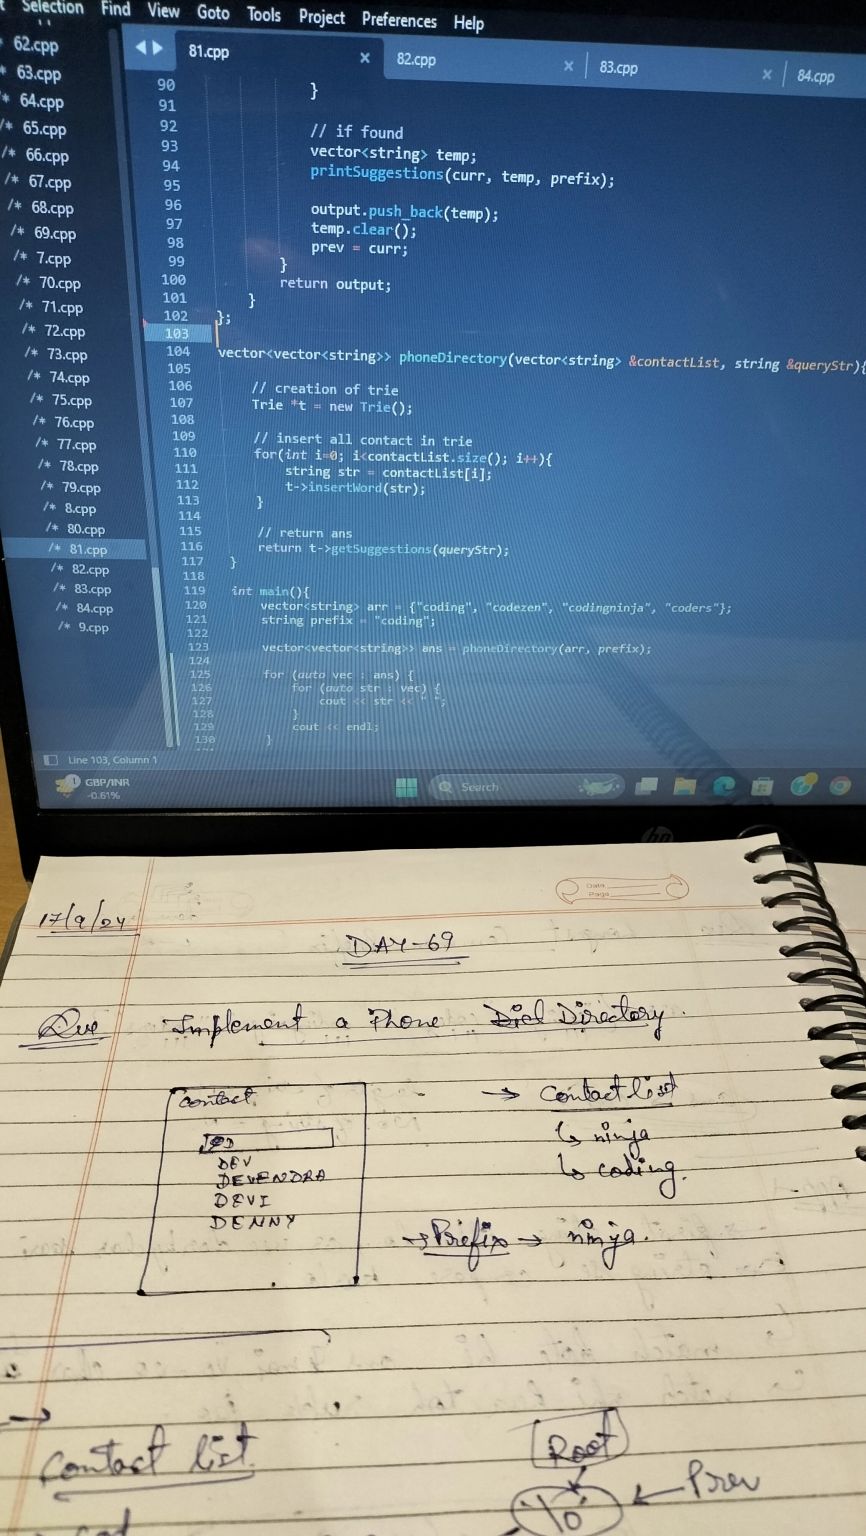 Selection Find View Goto Tools Project Preferences Help
81.cpp × 82.cpp × 83.cpp × 84.cpp
62.cpp
/* 63.cpp
/* 64.cpp
/* 65.cpp
/* 66.cpp
/* 67.cpp
/* 68.cpp
/* 69.cpp
/* 7.cpp
/* 70.cpp
/* 71.cpp
/* 72.cpp
/* 73.cpp
/* 74.cpp
/* 75.cpp
/* 76.cpp
/* 77.cpp
/* 78.cpp
/* 79.cpp
/* 8.cpp
/* 80.cpp
/* 81.cpp
/* 82.cpp
/* 83.cpp
/* 84.cpp
/* 9.cpp
90 }
91
92 // if found
93 vector<string> temp;
94 printSuggestions(curr, temp, prefix);
95
96 output.push_back(temp);
97 temp.clear();
98 prev = curr;
99 }
100 return output;
101 }
102 };
103
104 vector<vector<string>> phoneDirectory(vector<string> &contactList, string &queryStr){
105
106 // creation of trie
107 Trie *t = new Trie();
108
109 // insert all contact in trie
110 for(int i=0; i<contactList.size(); i++){
111 string str = contactList[i];
112 t->insertWord(str);
113 }
114
115 // return ans
116 return t->getSuggestions(queryStr);
117 }
118
119 int main(){
120 vector<string> arr = {"coding", "codezen", "codingninja", "coders"};
121 string prefix = "coding";
122
123 vector<vector<string>> ans = phoneDirectory(arr, prefix);
124
125 for (auto vec : ans) {
126 for (auto str : vec) {
127 cout << str << " ";
128 }
129 cout << endl;
130 }
Line 103, Column 1
1 GBP/INR
-0.61%
Search
hp
Date
Page
17/9/24
DAY-69
Que Implement a Phone Directory.
Contact
DEV
DEVENDRA
DEVI
DENNY
→ Contact list
↳ ninja
↳ coding.
→ Prefix → ninja.
→
Contact list
Root
'\0' ← Prev
cod